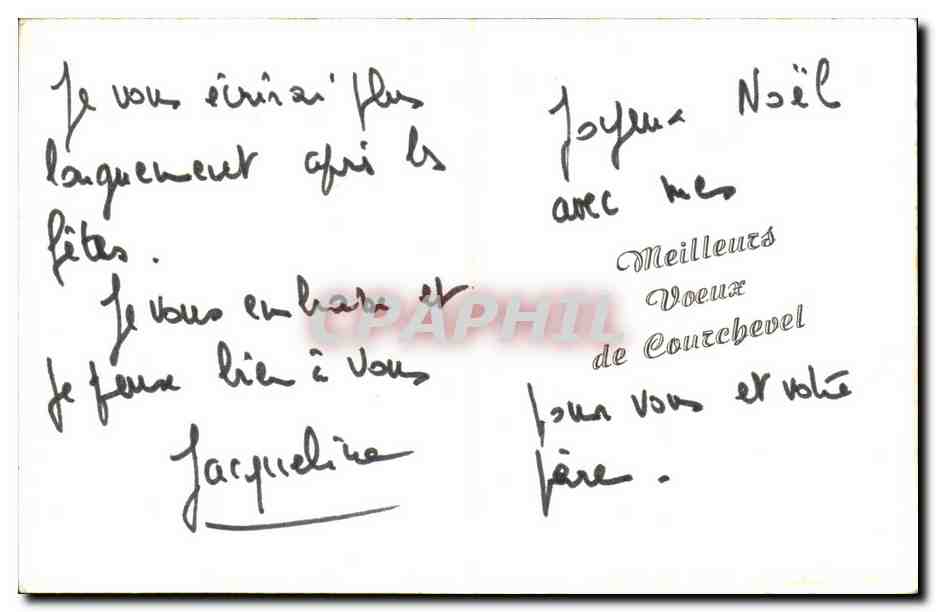 Joyeux Noël
avec mes
Meilleurs
Voeux
de Courchevel
pour vous et votre
père.
Je vous écrirai plus
longuement après les
fêtes.
Je vous embrasse et
je pense bien à vous
Jacqueline
CPAPHIL